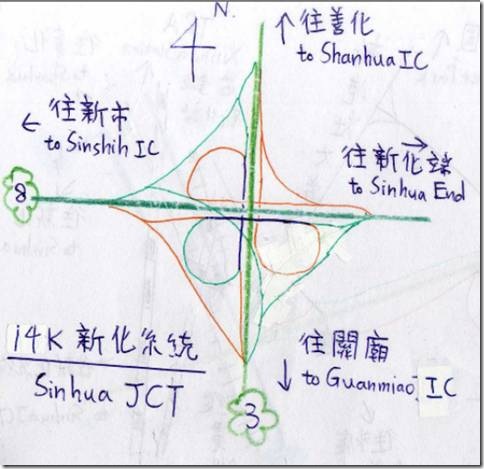 N.
↑往善化
to Shanhua IC
← 往新市
to Sinshih IC
往新化端 →
to Sinhua End
8
14K 新化系統
Sinhua JCT
往關廟
↓ to Guanmiao IC
3